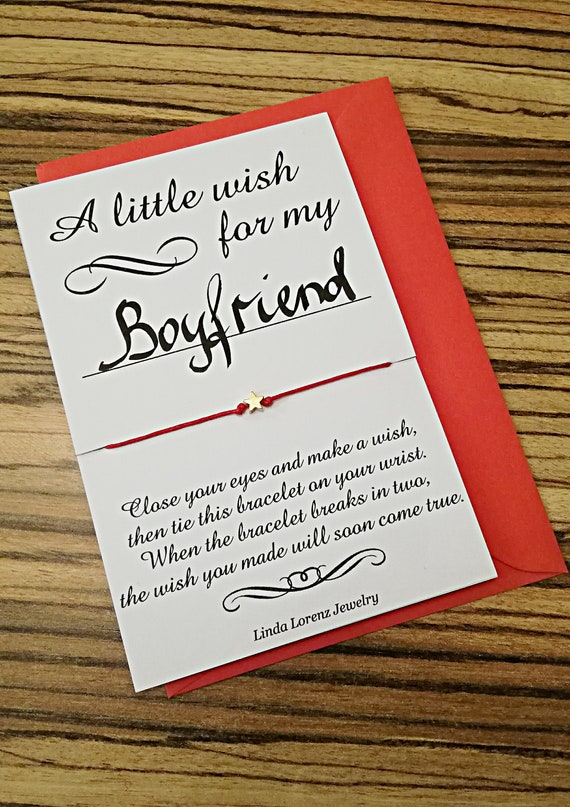 A little wish
for my
Boyfriend
Close your eyes and make a wish,
then tie this bracelet on your wrist.
When the bracelet breaks in two,
the wish you made will soon come true.
Linda Lorenz Jewelry